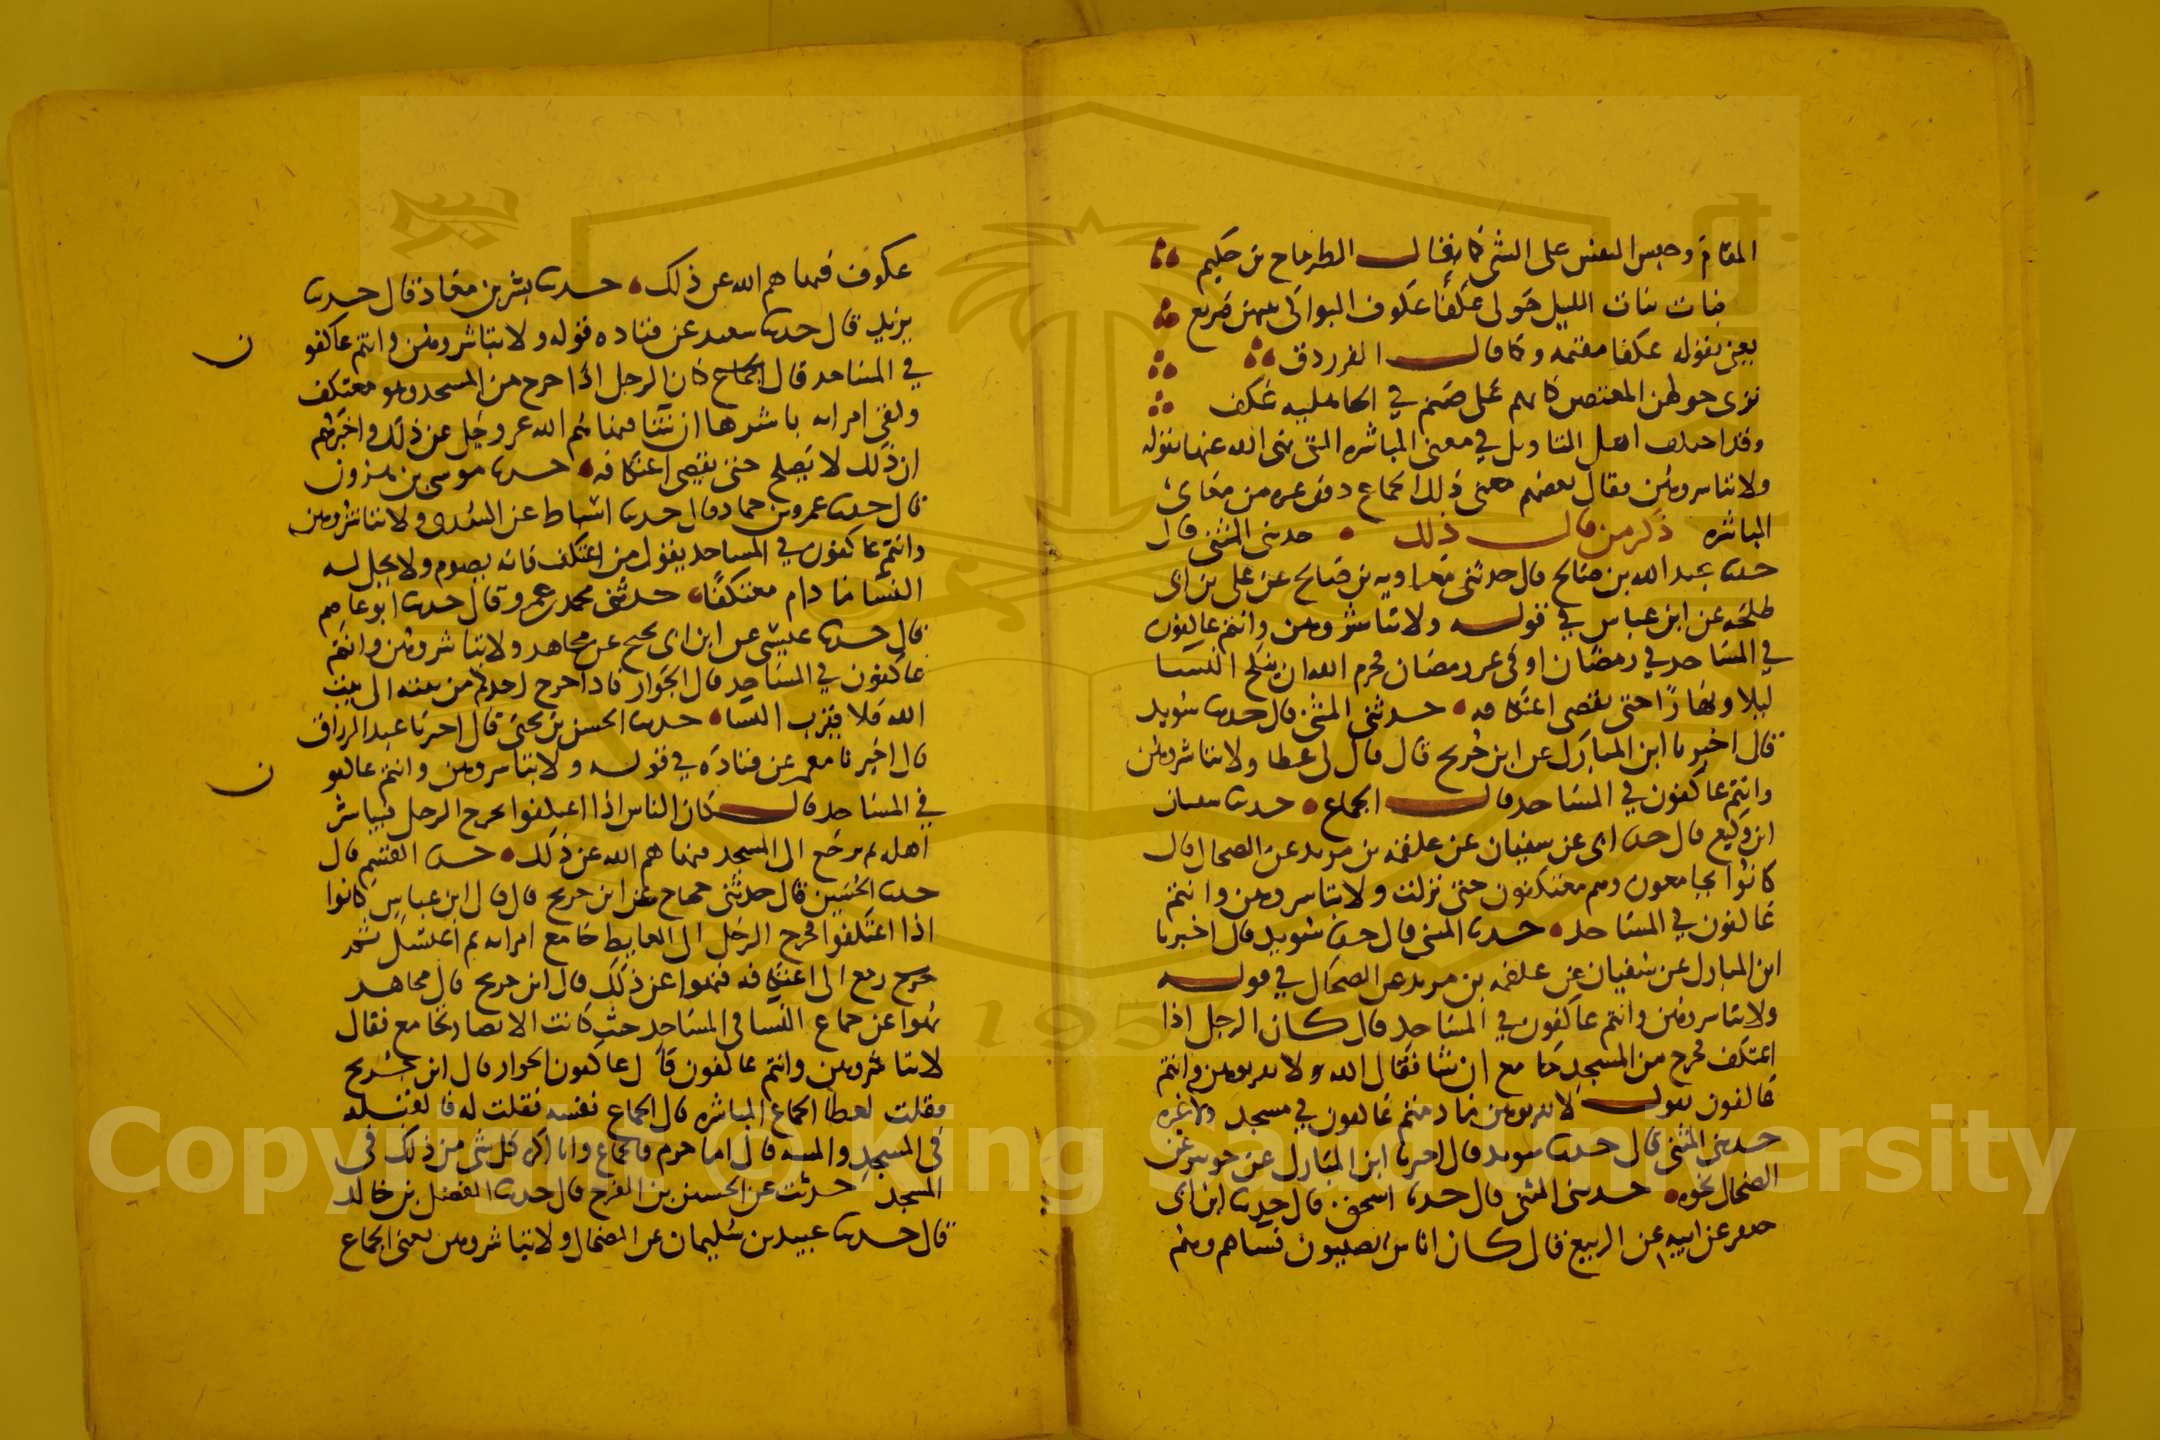 المقام وحبس النفس على الشي كما قال الطرماح بن حكيم
فبات بنات الليل حولي عكفا عكوف البواكي بينهن صريع
يعني بقوله عكفا مقيمه وكما قال الفرزدق
ترى حولهن المعتفين كانهم على صنم في الجاهليه عكف
وقد اختلف اهل التاويل في معنى المباشره التي نهى الله عنها بقوله
ولا تباشروهن فقال بعضهم معنى ذلك الجماع دون غيره من معاني
المباشره ذكر من قال ذلك حدثني المثنى قال
حدثنا عبد الله بن صالح قال حدثني معاويه بن صالح عن علي بن ابي
طلحه عن ابن عباس في قوله ولا تباشروهن وانتم عاكفون
في المساجد في رمضان او في غير رمضان فحرم الله ان ينكح النسا
ليلا ونهارا حتى يقضي اعتكافه حدثني المثنى قال حدثنا سويد
قال اخبرنا ابن المبارك عن ابن جريج قال قال لي عطا ولا تباشروهن
وانتم عاكفون في المساجد قال الجماع حدثنا سفيان
ابن وكيع قال حدثنا ابي عن سفيان عن علقمه بن مرثد عن الضحاك قال
كانوا يجامعون وهم معتكفون حتى نزلت ولا تباشروهن وانتم
عاكفون في المساجد حدثنا المثنى قال حدثنا سويد قال اخبرنا
ابن المبارك عن سفيان عن علقمه بن مرثد عن الضحاك في قوله
ولا تباشروهن وانتم عاكفون في المساجد قال كان الرجل اذا
اعتكف فخرج من المسجد جامع ان شا فقال الله ولا تقربوهن وانتم
عاكفون يقول لا تقربوهن ما دمتم عاكفون في مسجد ولا غيره
حدثني المثنى قال حدثنا سويد قال اخبرنا ابن المبارك عن جويبر عن
الضحاك نحوه حدثني المثنى قال حدثنا اسحق قال حدثنا ابن ابي
جعفر عن ابيه عن الربيع قال كان اناس يصيبون نساهم وهم
عكوف فنهاهم الله عن ذلك حدثنا بشر بن معاذ قال حدثنا
يزيد قال حدثنا سعيد عن قتاده قوله ولا تباشروهن وانتم عاكفو
ن
في المساجد قال الجماع كان الرجل اذا خرج من المسجد وهو معتكف
ولقي امراته باشرها ان شا فنهاهم الله عز وجل عن ذلك واخبرهم
ان ذلك لا يصلح حتى يقضي اعتكافه حدثنا موسى بن هرون
قال حدثنا عمرو بن حماد قال حدثنا اسباط عن السدي ولا تباشروهن
وانتم عاكفون في المساجد يقول من اعتكف فانه يصوم ولا يحل له
النسا ما دام معتكفا حدثني محمد بن عمرو قال حدثنا ابو عاصم
قال حدثنا عيسى عن ابن ابي نجيح عن مجاهد ولا تباشروهن وانتم
عاكفون في المساجد قال الجوار فاذا خرج احدكم من بيته الى بيت
الله فلا يقرب النسا حدثنا الحسن بن يحيى قال اخبرنا عبد الرزاق
قال اخبرنا معمر عن قتاده في قوله ولا تباشروهن وانتم عاكفو
ن
في المساجد قال كان الناس اذا اعتكفوا يخرج الرجل فيباشر
اهله ثم يرجع الى المسجد فنهاهم الله عن ذلك حدثنا القسم قال
حدثنا الحسين قال حدثني حجاج عن ابن جريج قال قال ابن عباس كانوا
اذا اعتكفوا فخرج الرجل الى الغايط جامع امراته ثم اغتسل ثم
خرج رجع الى اعتكافه فنهوا عن ذلك قال ابن جريج قال مجاهد
نهوا عن جماع النسا في المساجد حيث كانت الانصار تجامع فقال
لا تباشروهن وانتم عاكفون قال عاكفون الجوار قال ابن جريج
فقلت لعطا الجماع المباشره قال الجماع نفسه فقلت له فالقبله
في المسجد والمسه قال اما حرم فالجماع وانا اكره كل شي من ذلك في
المسجد حدثت عن الحسين بن الفرج قال حدثنا الفضل بن خالد
قال حدثنا عبيد بن سليمان عن الضحاك ولا تباشروهن يعني الجماع
1957
Copyright © King Saud University